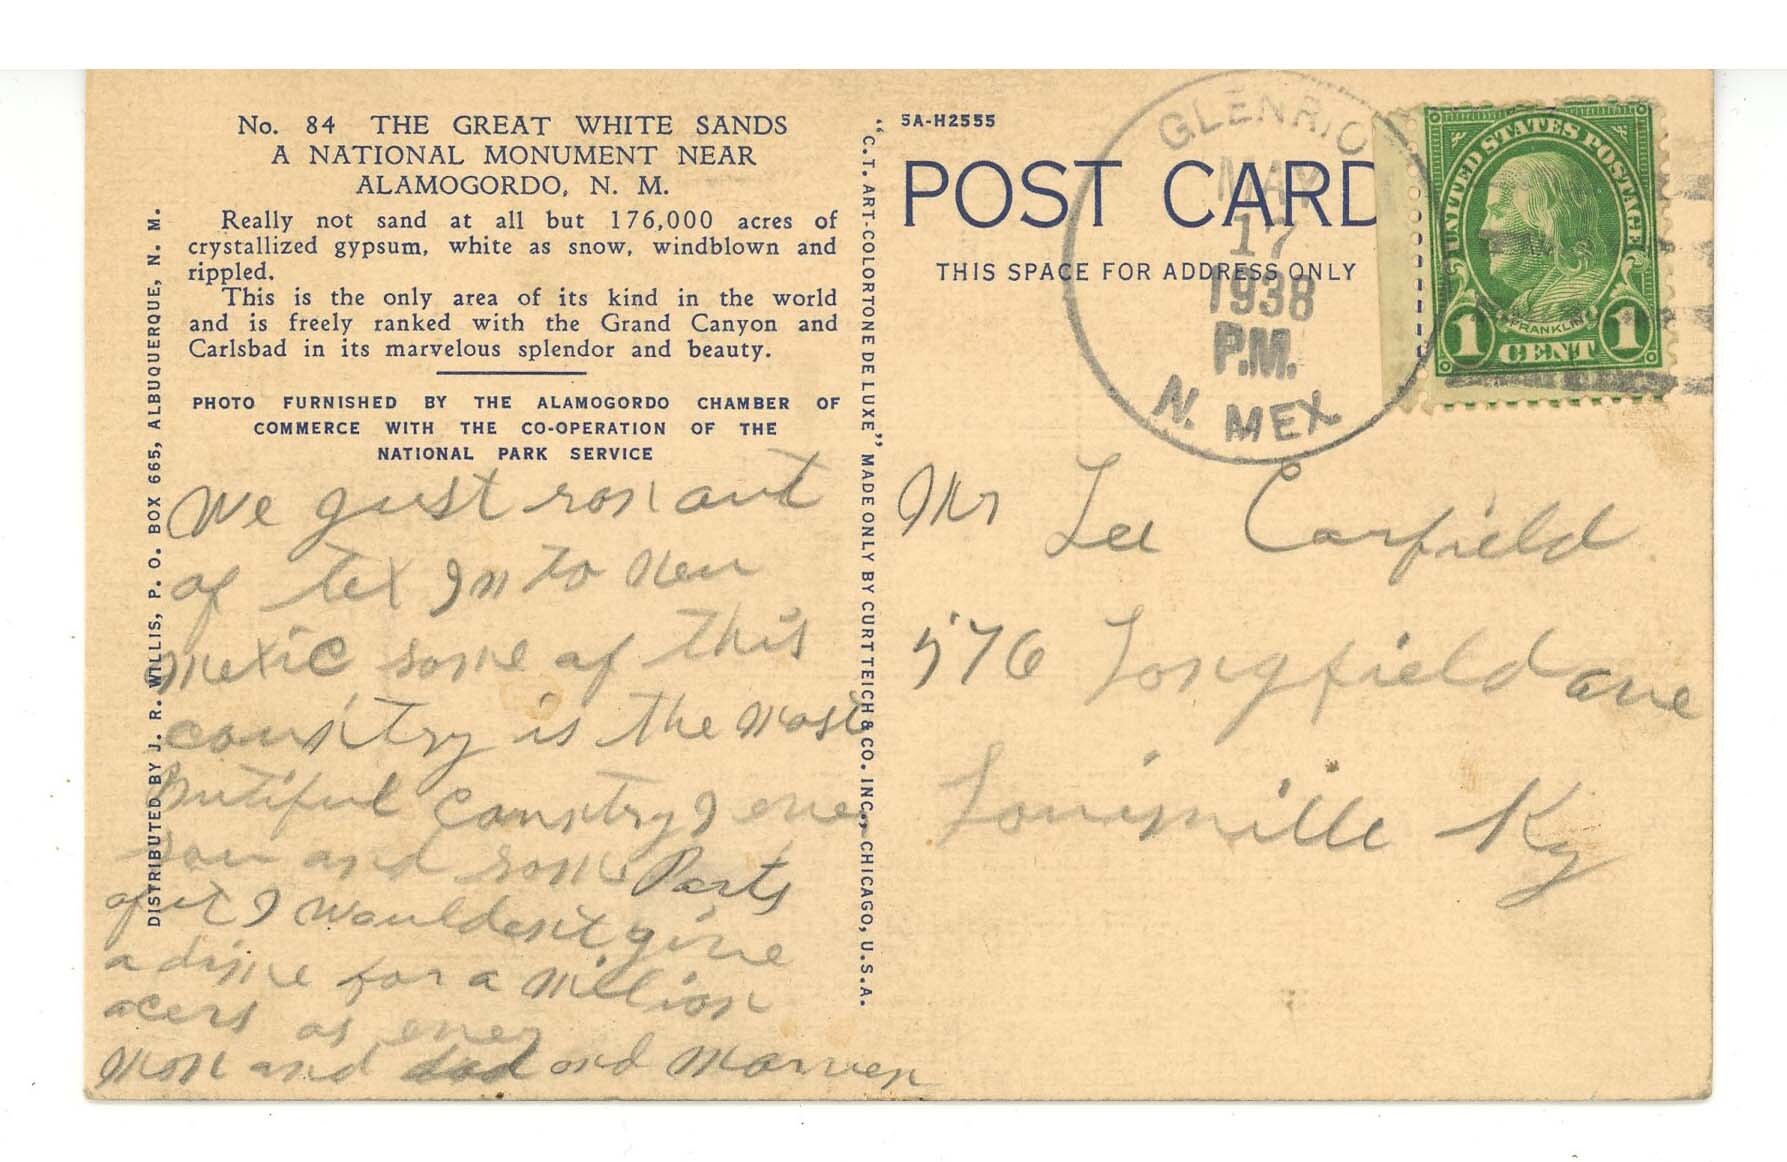 No. 84 THE GREAT WHITE SANDS
A NATIONAL MONUMENT NEAR
ALAMOGORDO, N. M.
Really not sand at all but 176,000 acres of
crystallized gypsum, white as snow, windblown and
rippled.
This is the only area of its kind in the world
and is freely ranked with the Grand Canyon and
Carlsbad in its marvelous splendor and beauty.
PHOTO FURNISHED BY THE ALAMOGORDO CHAMBER OF
COMMERCE WITH THE CO-OPERATION OF THE
NATIONAL PARK SERVICE
DISTRIBUTED BY J. R. WILLIS, P. O. BOX 665, ALBUQUERQUE, N. M.
We just ron out
of tex In to New
Mexic some of this
country is the most
butiful country I ever
saw and some Parts
of it I wouldent give
a dime for a million
acers as ever
Mon and dad and
"C. T. ART-COLORTONE DE LUXE" MADE ONLY BY CURT TEICH & CO. INC., CHICAGO, U.S.A.
5A-H2555
POST CARD
THIS SPACE FOR ADDRESS ONLY
GLENRIO
MAY
17
1938
P.M.
N. MEX.
UNITED STATES POSTAGE
FRANKLIN
1 CENT 1
Mr Lee Carfield
576 Longfield ave
Louisville Ky